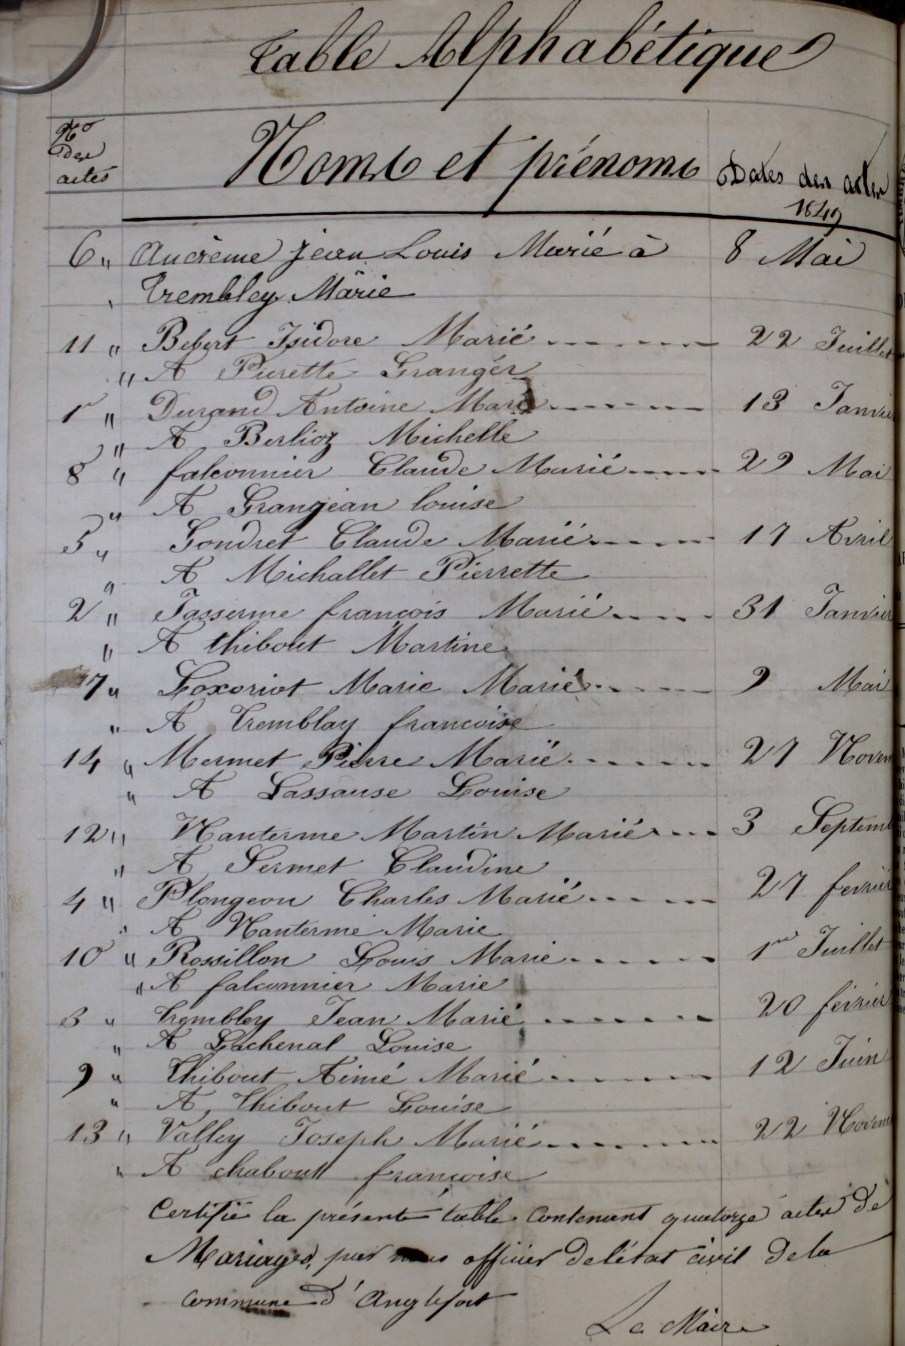 Table Alphabétique
No des actes
Noms et prénoms
Dates des actes
1849
6 " Ancrême jean Louis Marié à 8 Mai
Trembley Marie
11 " Bebert Isidore Marié 22 Juillet
" A Pierette Granger
1er " Durand Antoine Marié 13 Janvie
" A Berlioz Michelle
8 " falconnier Claude Marié 29 Mai
" A Granjean louise
5 " Gondret Claude Marié 17 Avril
" A Michallet Pierrette
2 " Jasserme françois Marié 31 Janvier
" A thibout Martine
7 " Loxoriot Marie Marié 9 Mai
" A tremblay francoise
14 " Mermet Pierre Marié 27 Novem
" A Lassause Louise
12 " Nanterme Martin Marié 3 Septemb
" A Sermet Claudine
4 " Plongeon Charles Marié 27 fevrier
" A Nanterme Marie
10 " Rossillon Louis Marié 1er Juillet
" A falconnier Marie
3 " trembley Jean Marié 20 février
" A Lachenal Louise
9 " thibout Aimé Marié 12 Juin
" A thibout Louise
13 " Valley Joseph Marié 22 Novem
" A chabout françoise
Certifié la présente table contenant quatorze actes de
Mariages, par nous officier de l'état civil de la
commune d'Anglefort
Le Maire